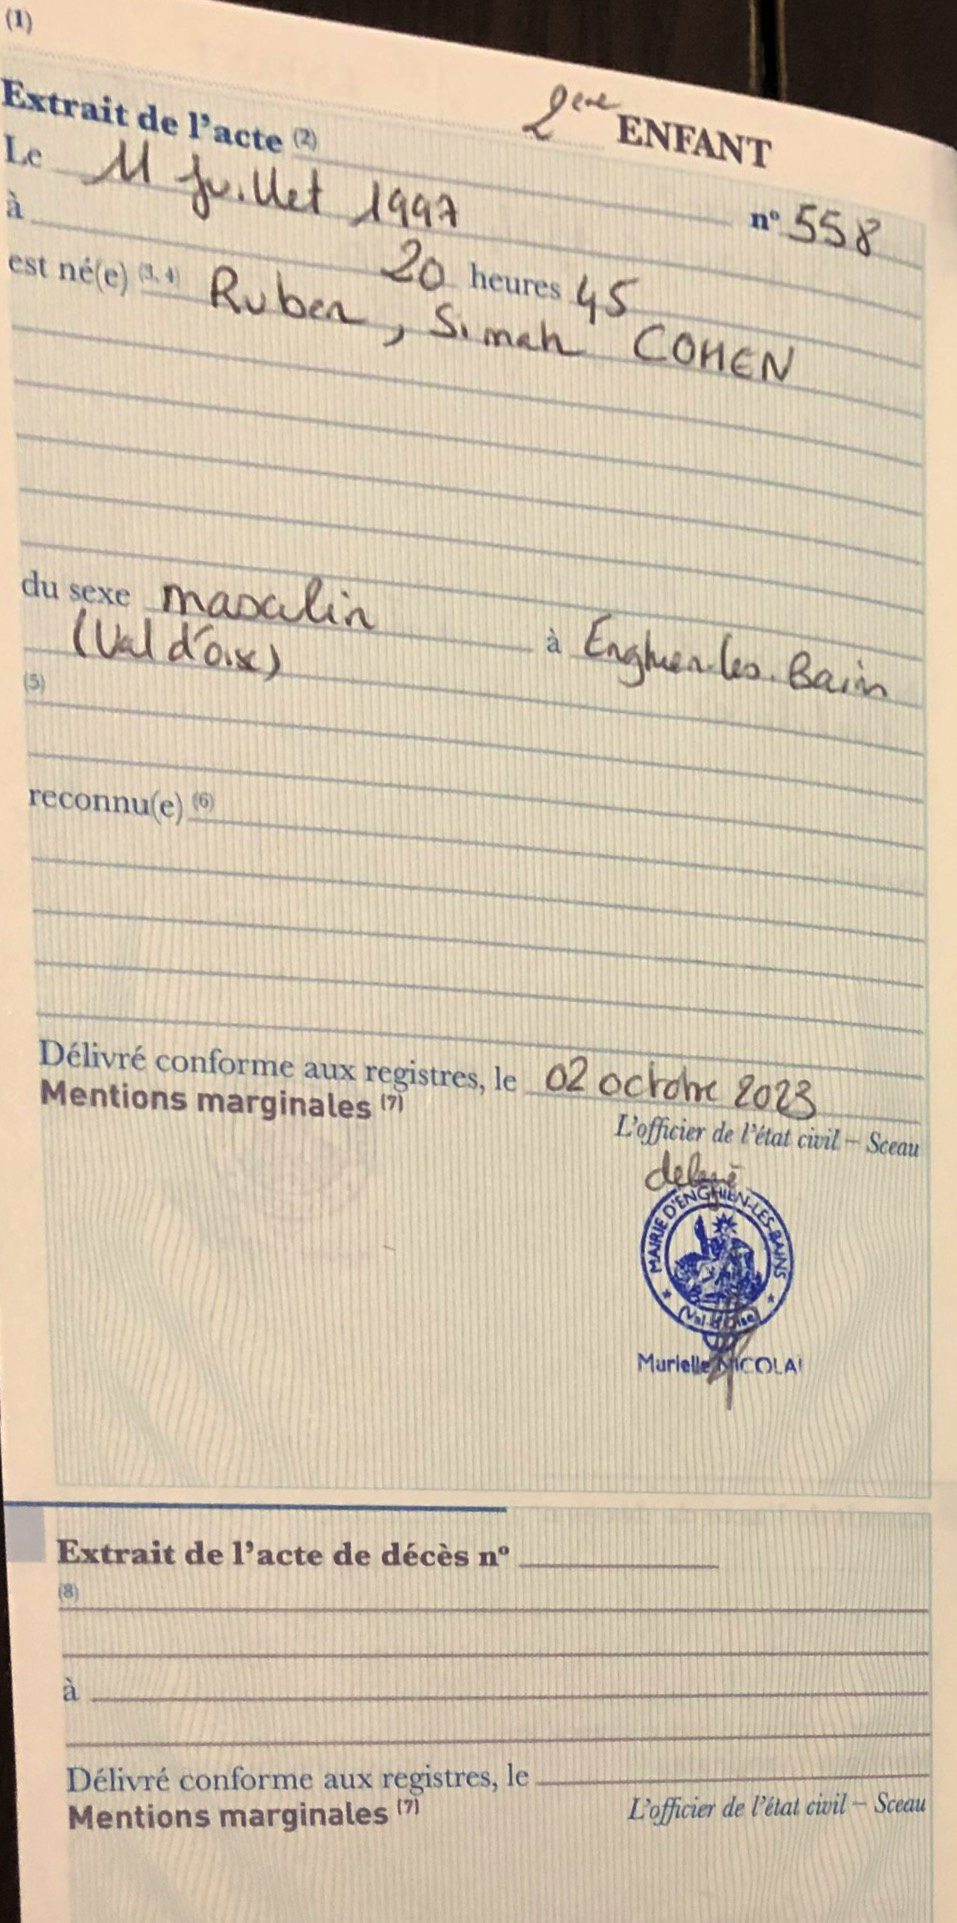 (1)
2ème ENFANT
Extrait de l'acte (2)
n° 558
Le 11 Juillet 1997
à 20 heures 45
est né(e) (3, 4) Ruben, Simah COHEN
du sexe masculin à Enghien-les-Bain
(Val d'oise)
(5)
reconnu(e) (6)
Délivré conforme aux registres, le 02 octobre 2023
Mentions marginales (7)
L'officier de l'état civil – Sceau
délégué
MAIRIE D'ENGHIEN-LES-BAINS
(Val-d'Oise)
Murielle NICOLAI
Extrait de l'acte de décès n°
(8)
à
Délivré conforme aux registres, le
Mentions marginales (7)
L'officier de l'état civil – Sceau